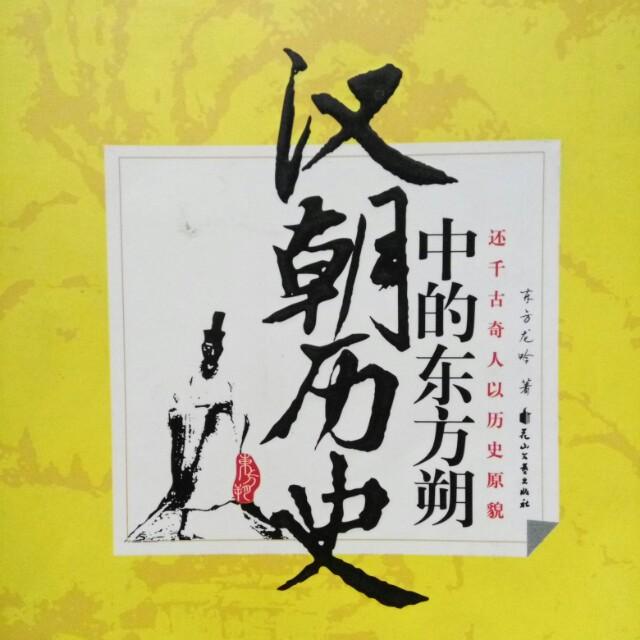 汉朝历史
中的东方朔
还千古奇人以历史原貌
东方龙吟 著
花山文艺出版社
東方朔